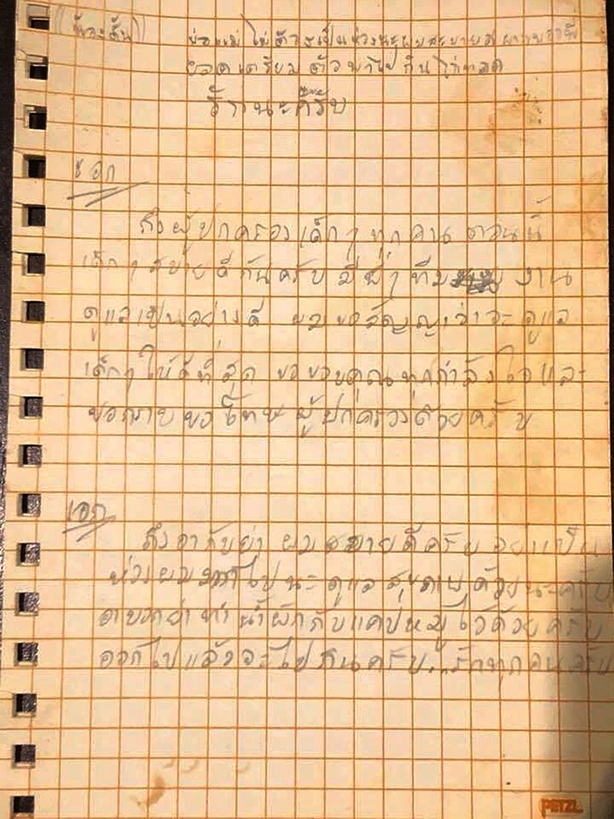 (พี่จะตั้น) พ่อแม่ ไม่ต้องเป็นห่วงนะผมสบายดี
ยอดเตรียมตัวพาไปกินไก่ทอด
รักนะครับ
เอก
ถึงผู้ปกครองเด็กๆ ทุกคน ตอนนี้
เด็กๆ สบายดีกันครับ มีพี่ๆ ทีม งาน
ดูแลเป็นอย่างดี ผมขอสัญญาว่าจะดูแล
เด็กๆ ให้ดีที่สุด ขอขอบคุณทุกกำลังใจและ
ขอกราบขอโทษผู้ปกครองด้วยครับ
เอก
ถึงอากับย่า ผมสบายดีครับ อย่าเป็น
ห่วงผมมากไปนะ ดูแลสุขภาพด้วยนะครับ
อาบอกย่าทำน้ำผักกับแคปหมูไว้ด้วยครับ
ออกไปแล้วจะไปกินครับ..รักทุกคนครับ
PETZL